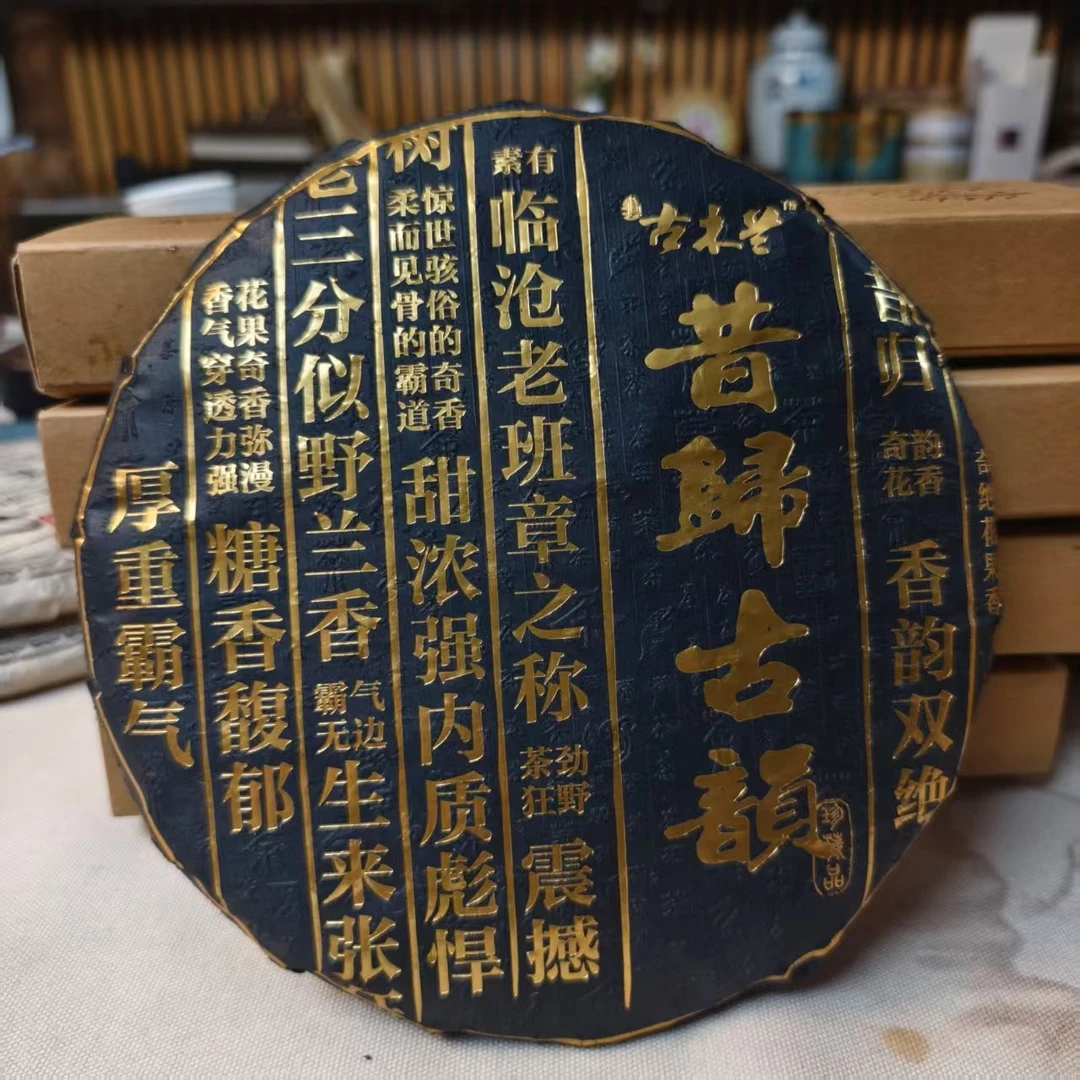 绝花果香
归
奇韵
花香
香韵双绝
古木兰™
昔歸古韻
珍藏品
素有
临沧老班章之称
茶劲
狂野
震撼
树
惊世骇俗的奇香
柔而见骨的霸道
甜浓强内质彪悍
三分似野兰香
霸气
无边
生来张
花果奇香弥漫
香气穿透力强
糖香馥郁
厚重霸气